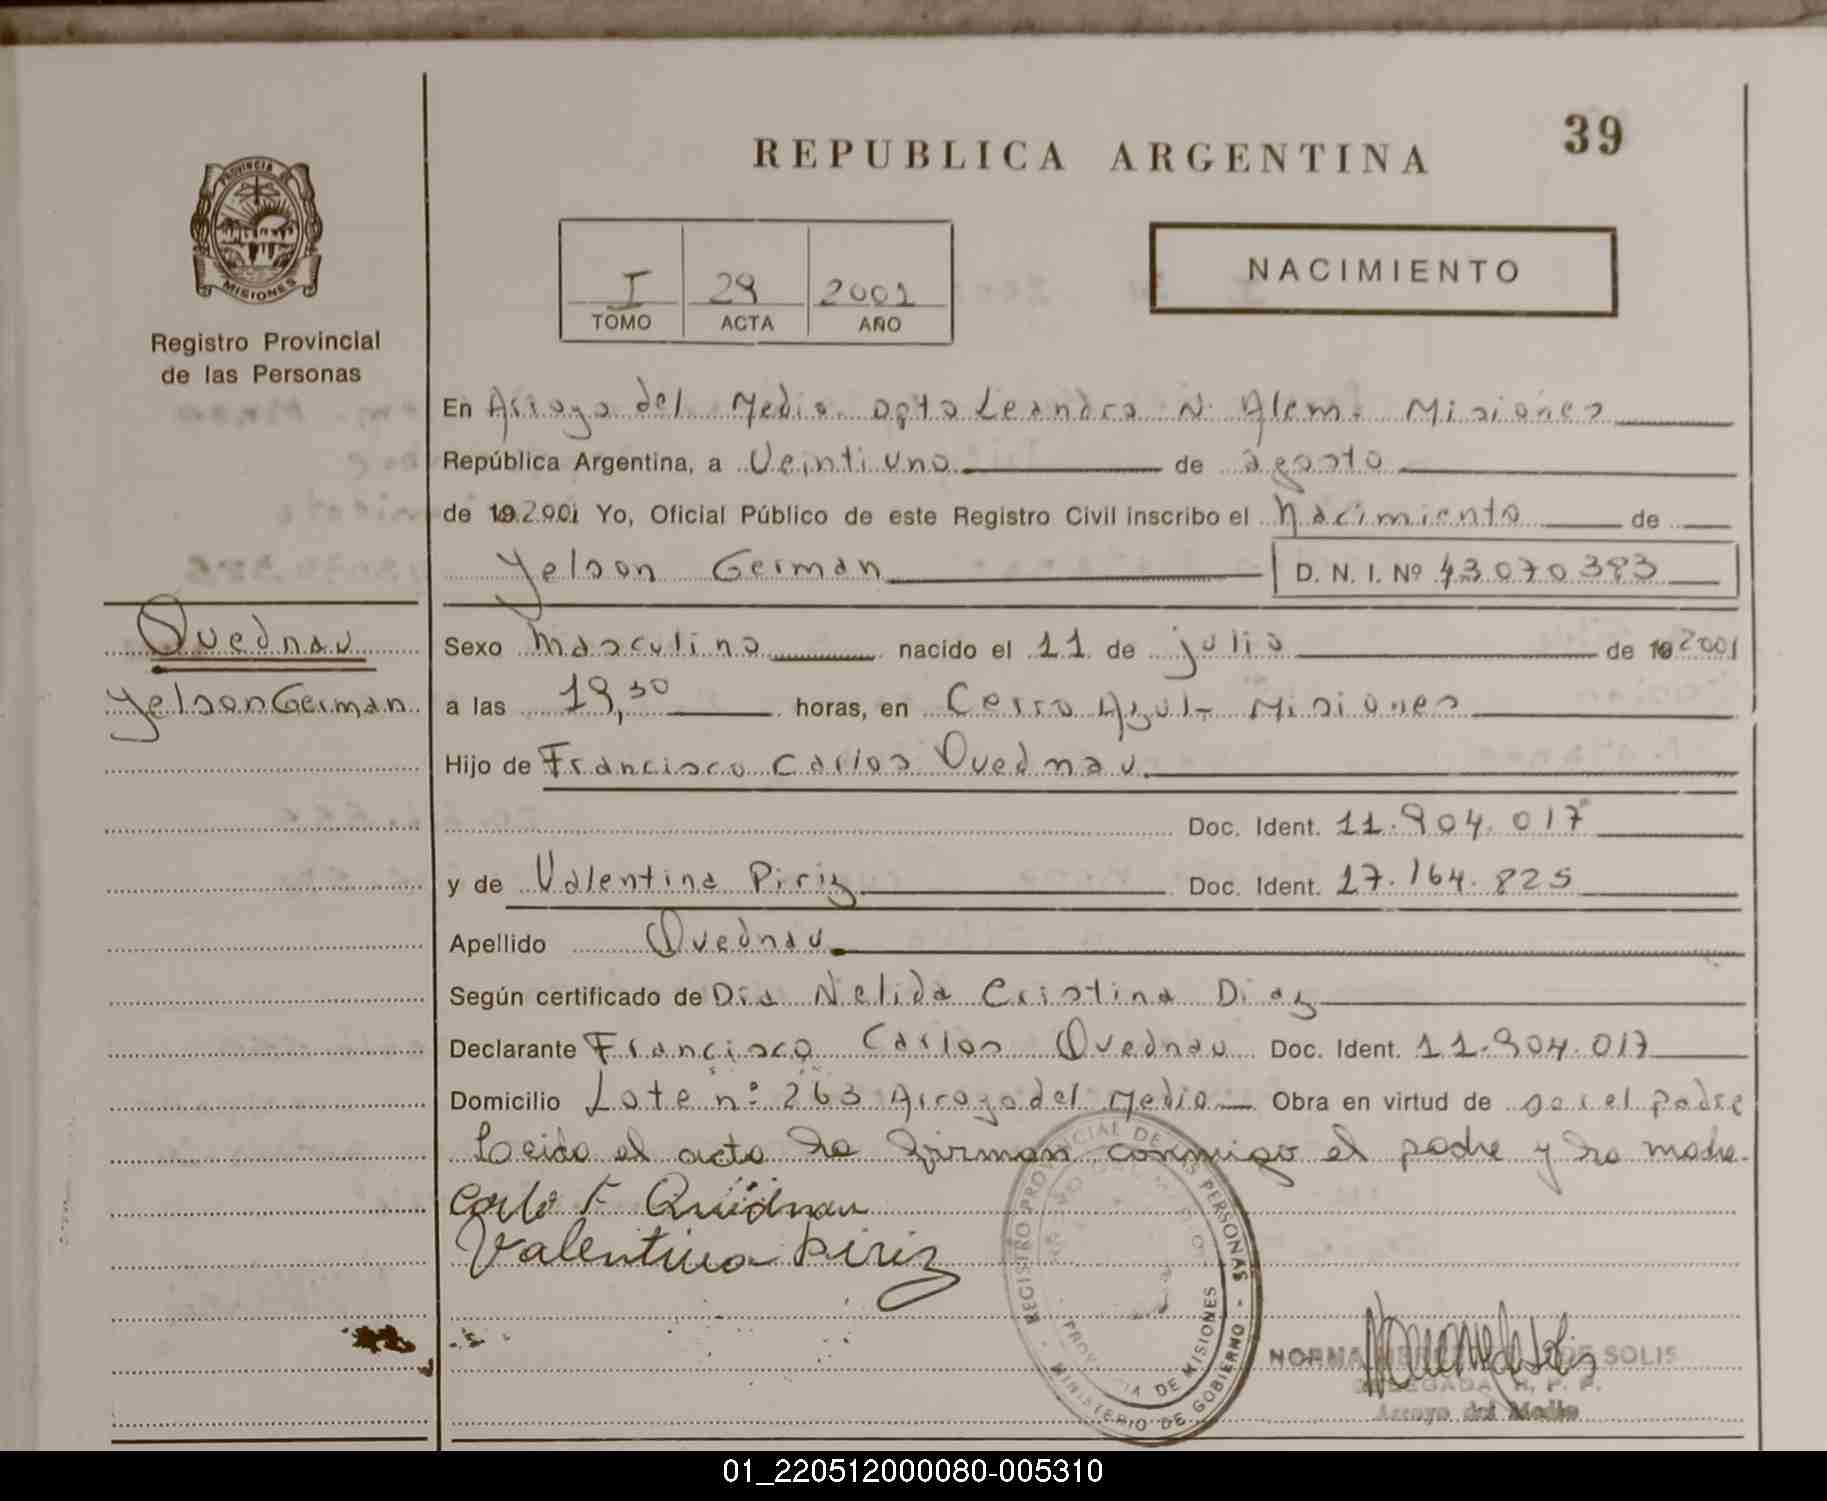 39
REPUBLICA ARGENTINA
PROVINCIA DE
MISIONES
Registro Provincial
de las Personas
I 29 2001
TOMO ACTA AÑO
NACIMIENTO
En Arroyo del Medio Dpto Leandro N. Alem. Misiones
República Argentina, a Veintiuno de agosto
de 19 2001 Yo, Oficial Público de este Registro Civil inscribo el Nacimiento de
Yelson German D. N. I. Nº 43070383
Quednau
Yelson German
Sexo Masculino nacido el 11 de julio de 19 2001
a las 19,30 horas, en Cerro Azul - Misiones
Hijo de Francisco Carlos Quednau
Doc. Ident. 11.904.017
y de Valentina Piriz Doc. Ident. 17.164.825
Apellido Quednau
Según certificado de Dra Nelida Cristina Diaz
Declarante Francisco Carlos Quednau Doc. Ident. 11.904.017
Domicilio Lote nº 263 Arroyo del Medio Obra en virtud de ser el padre
Leida el acta la firman conmigo el padre y la madre.
Carlo F Quednau
Valentina Piriz
REGISTRO PROVINCIAL DE LAS PERSONAS
PROVINCIA DE MISIONES
MINISTERIO DE GOBIERNO
NORMA DE SOLIS
DELEGADA R. P. P.
Arroyo del Medio
01_220512000080-005310